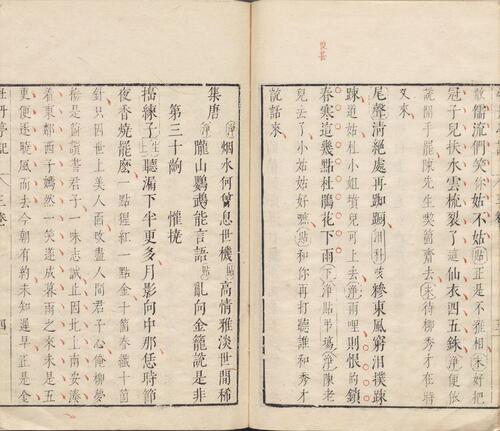 散儒流們笑你姑不姑〔貼〕正是不雅相〔末〕好把
冠子兒扶水雲梳裂了這仙衣四五銖〔淨〕便依
說開手罷陳先生喫箇齋去〔末〕待柳秀才在時
又來
尾聲清絶處再踟蹰
糝東風窮泪撲疎
疎道姑杜小姐墳兒可上去〔淨〕雨哩則恨的鎖
春寒這幾點杜鵑花下雨
〔淨〕陳老
兒去了小姑姑好
〔貼〕和你再打聽誰和秀才
說話來
〔淨〕烟水何曾息世機〔貼〕高情雅淡世間稀
集唐
隴山鸚鵡能言語〔貼〕亂向金籠說是非
第三十齣 懽撓
搗練子〔生〕聽漏下半更多月影向中那恁時節
夜香燒罷麽一點猩紅一點金十箇春纖十箇
針只因世上美人面改盡人間君子心俺柳夢
梅是箇讀書君子一味志誠止因北上南安湊
着東鄰西子嫣然一笑遂成暮雨之來未是五
更便逐曉風而去今朝有約未知遲早正是金
牡丹亭記 三卷 四